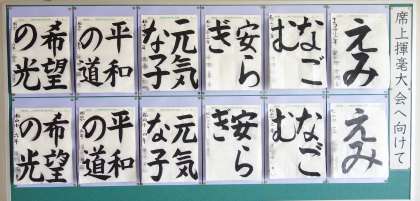 席上揮毫大会へ向けて
えみ
なご
む
安ら
ぎ
元気
な子
平和
の道
希望
の光
えみ
なご
む
安ら
ぎ
元気
な子
平和
の道
希望
の光